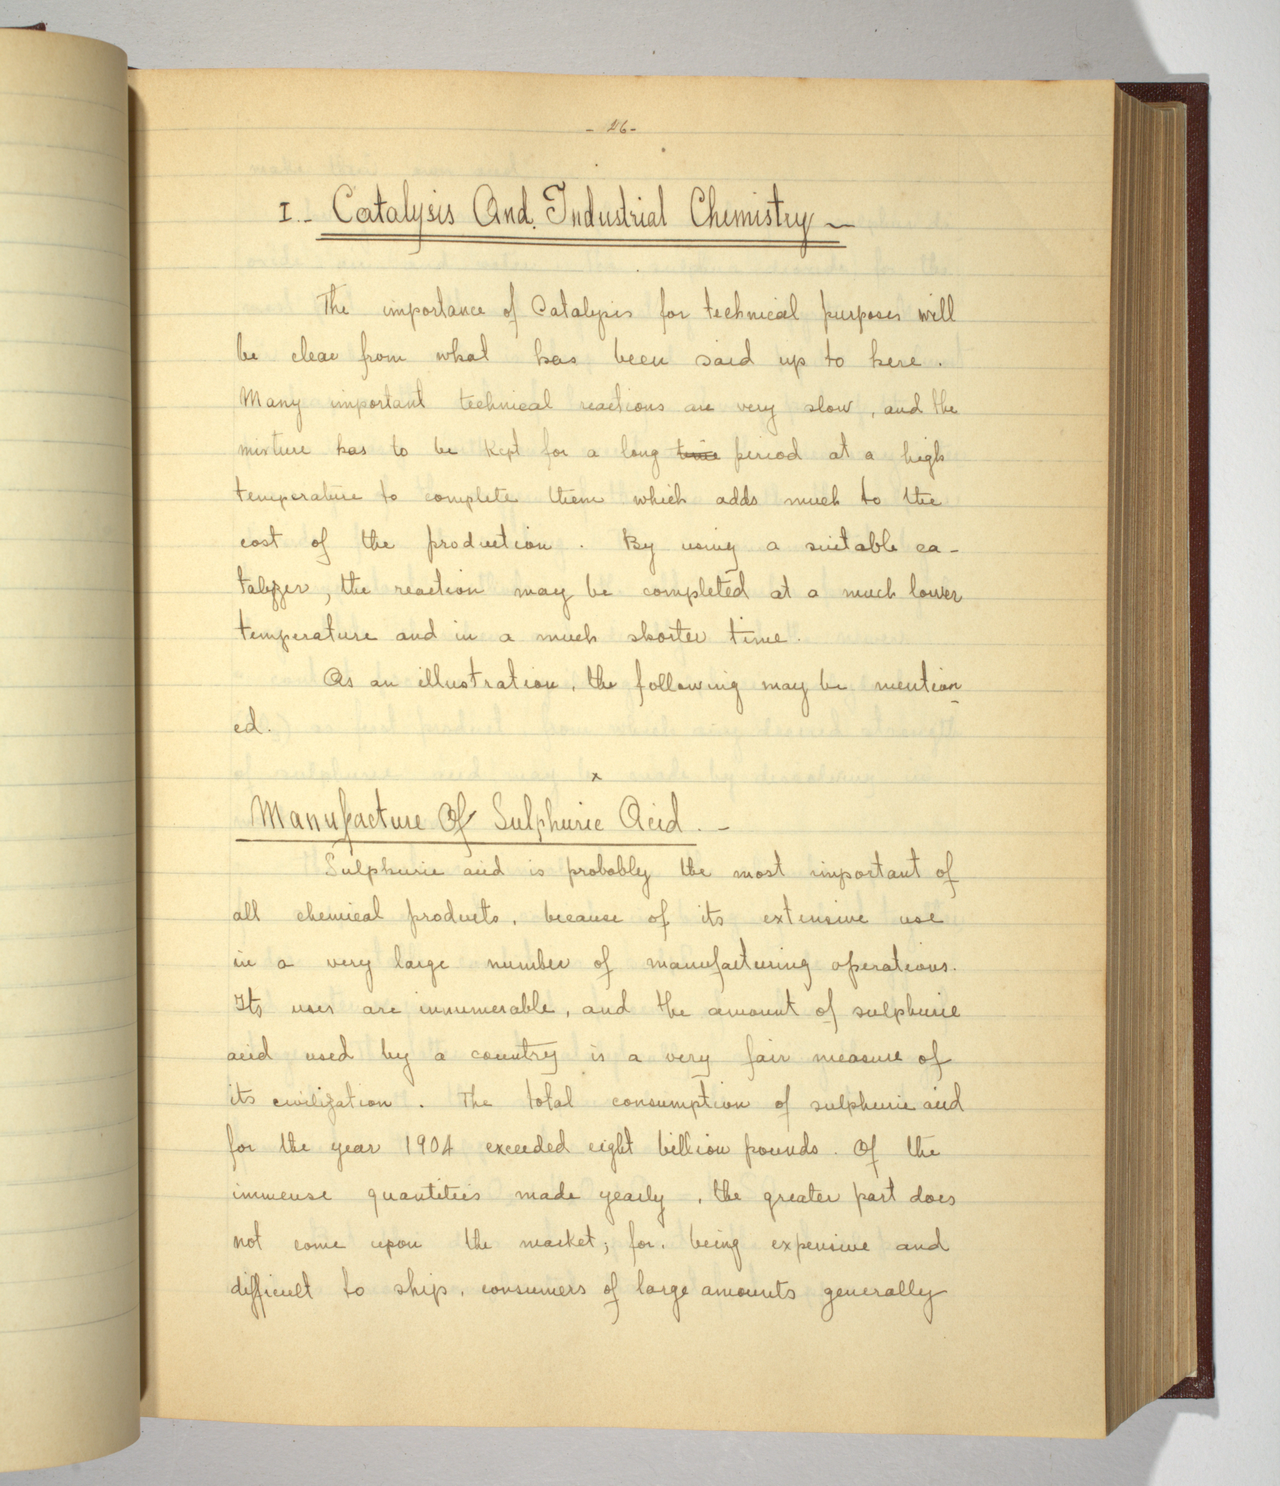 - 26 -
I.- Catalysis And Industrial Chemistry -
The importance of Catalysis for technical purposes will
be clear from what has been said up to here.
Many important technical reactions are very slow, and the
mixture has to be kept for a long time period at a high
temperature to complete them which adds much to the
cost of the production. By using a suitable ca-
talyzer, the reaction may be completed at a much lower
temperature and in a much shorter time.
As an illustration, the following may be mention-
ed.
x
Manufacture Of Sulphuric Acid.-
Sulphuric acid is probably the most important of
all chemical products, because of its extensive use
in a very large number of manufacturing operations.
Its uses are innumerable, and the amount of sulphuric
acid used by a country is a very fair measure of
its civilization. The total consumption of sulphuric acid
for the year 1904 exceeded eight billion pounds. Of the
immense quantities made yearly, the greater part does
not come upon the market; for, being expensive and
difficult to ship, consumers of large amounts generally